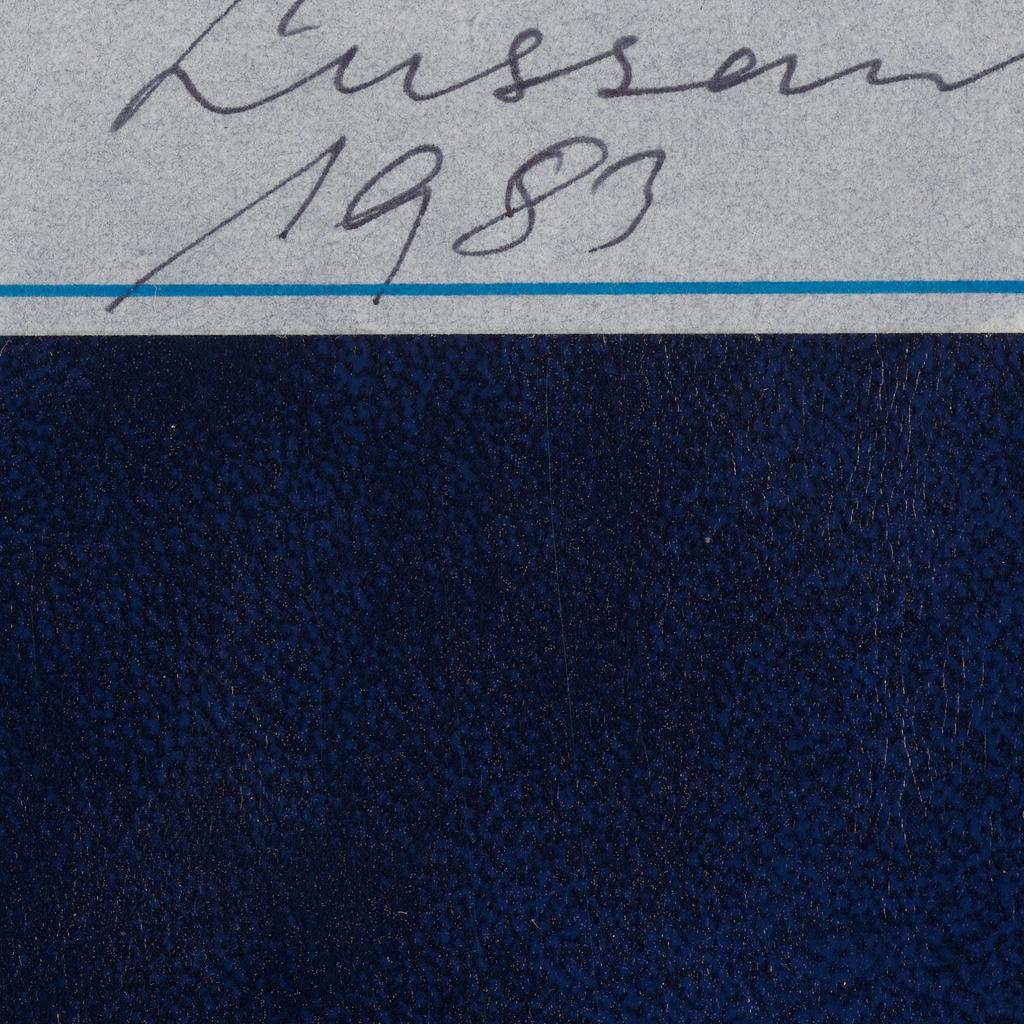 Lussan
1983